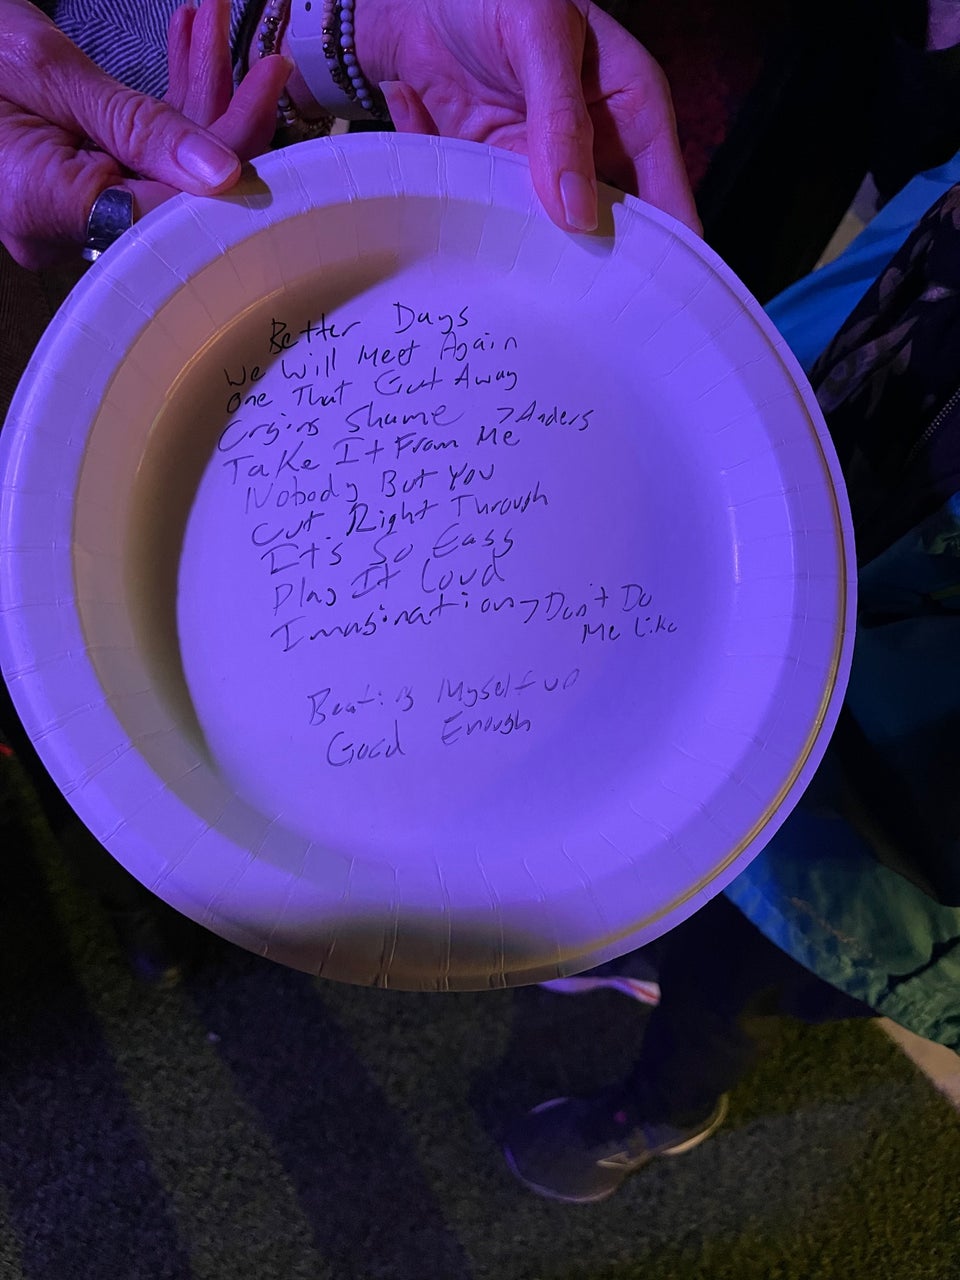 Better Days
We Will Meet Again
One That Got Away
Crying Shame > Anders
Take It From Me
Nobody But You
Cut Right Through
It's So Easy
Play It Loud
Imagination > Don't Do
Me Like
Beating Myself up
Good Enough